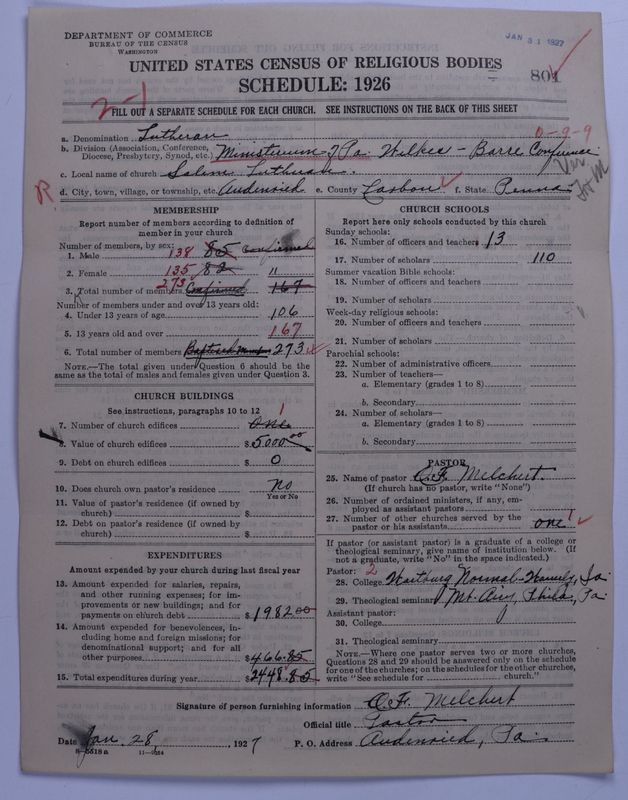 DEPARTMENT OF COMMERCE
BUREAU OF THE CENSUS
WASHINGTON
JAN 31 1927
UNITED STATES CENSUS OF RELIGIOUS BODIES
SCHEDULE: 1926
801
2-1
FILL OUT A SEPARATE SCHEDULE FOR EACH CHURCH. SEE INSTRUCTIONS ON THE BACK OF THIS SHEET
a. Denomination Lutheran
0-9-9
b. Division (Association, Conference, Diocese, Presbytery, Synod, etc.) Ministerium of Pa. Wilkes-Barre Conference
c. Local name of church Salem Lutheran.
R
d. City, town, village, or township, etc. Audenried e. County Carbon f. State Penna.
MEMBERSHIP
Report number of members according to definition of
member in your church
Number of members, by sex:
1. Male 138 85 Confirmed
2. Female 135 82 "
3. Total number of members Confirmed 273 167
Number of members under and over 13 years old:
4. Under 13 years of age 106
5. 13 years old and over 167
6. Total number of members Baptised Members 273
NOTE.—The total given under Question 6 should be the
same as the total of males and females given under Question 3.
CHURCH BUILDINGS
See instructions, paragraphs 10 to 12
7. Number of church edifices One 1
8. Value of church edifices $5000.00
9. Debt on church edifices $ 0
10. Does church own pastor's residence No
Yes or No
11. Value of pastor's residence (if owned by
church) $
12. Debt on pastor's residence (if owned by
church) $
EXPENDITURES
Amount expended by your church during last fiscal year
13. Amount expended for salaries, repairs,
and other running expenses; for im-
provements or new buildings; and for
payments on church debt $1982.00
14. Amount expended for benevolences, in-
cluding home and foreign missions; for
denominational support; and for all
other purposes $466.85
15. Total expenditures during year $2448.85
CHURCH SCHOOLS
Report here only schools conducted by this church
Sunday schools:
16. Number of officers and teachers 13
17. Number of scholars 110
Summer vacation Bible schools:
18. Number of officers and teachers
19. Number of scholars
Week-day religious schools:
20. Number of officers and teachers
21. Number of scholars
Parochial schools:
22. Number of administrative officers
23. Number of teachers—
a. Elementary (grades 1 to 8)
b. Secondary
24. Number of scholars—
a. Elementary (grades 1 to 8)
b. Secondary
PASTOR
25. Name of pastor O.F. Melchert.
(If church has no pastor, write "None")
26. Number of ordained ministers, if any, em-
ployed as assistant pastors
27. Number of other churches served by the
pastor or his assistants one 1
If pastor (or assistant pastor) is a graduate of a college or
theological seminary, give name of institution below. (If
not a graduate, write "No" in the space indicated.)
Pastor: 2
28. College Wartburg Normal-Waverly, Ia
29. Theological seminary Mt. Airy, Phila., Pa.
Assistant pastor:
30. College
31. Theological seminary
NOTE.—Where one pastor serves two or more churches,
Questions 28 and 29 should be answered only on the schedule
for one of the churches; on the schedules for the other churches,
write "See schedule for church."
Signature of person furnishing information O.F. Melchert
Official title Pastor
Date Jan. 28, 1927 P. O. Address Audenried, Pa.
8-5218a 11-9064